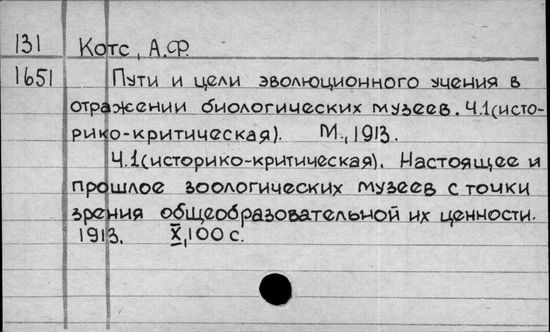 131 Котс, А.Ф.
1651 Пути и цели эволюционного учения в
отражении биологических музеев. Ч.1(исто-
рико-критическая). М., 1913.
Ч.1(историко-критическая). Настоящее и
прошлое зоологических музеев с точки
зрения общеобразовательной их ценности.
1913. X, 100 с.